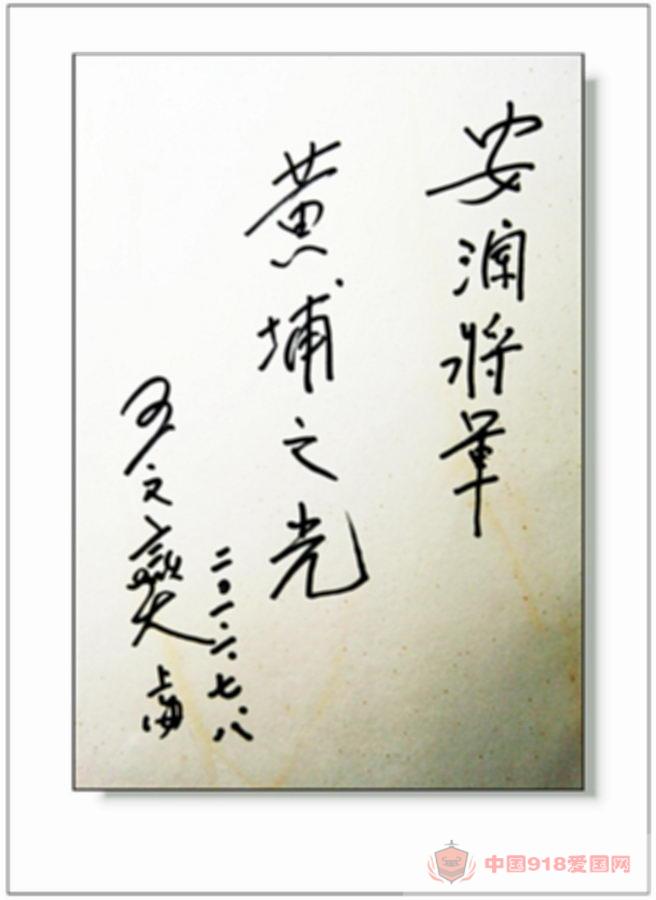 安澜将軍
黄埔之光
二〇一六.七.八
王文燮 上海
中国918爱国网